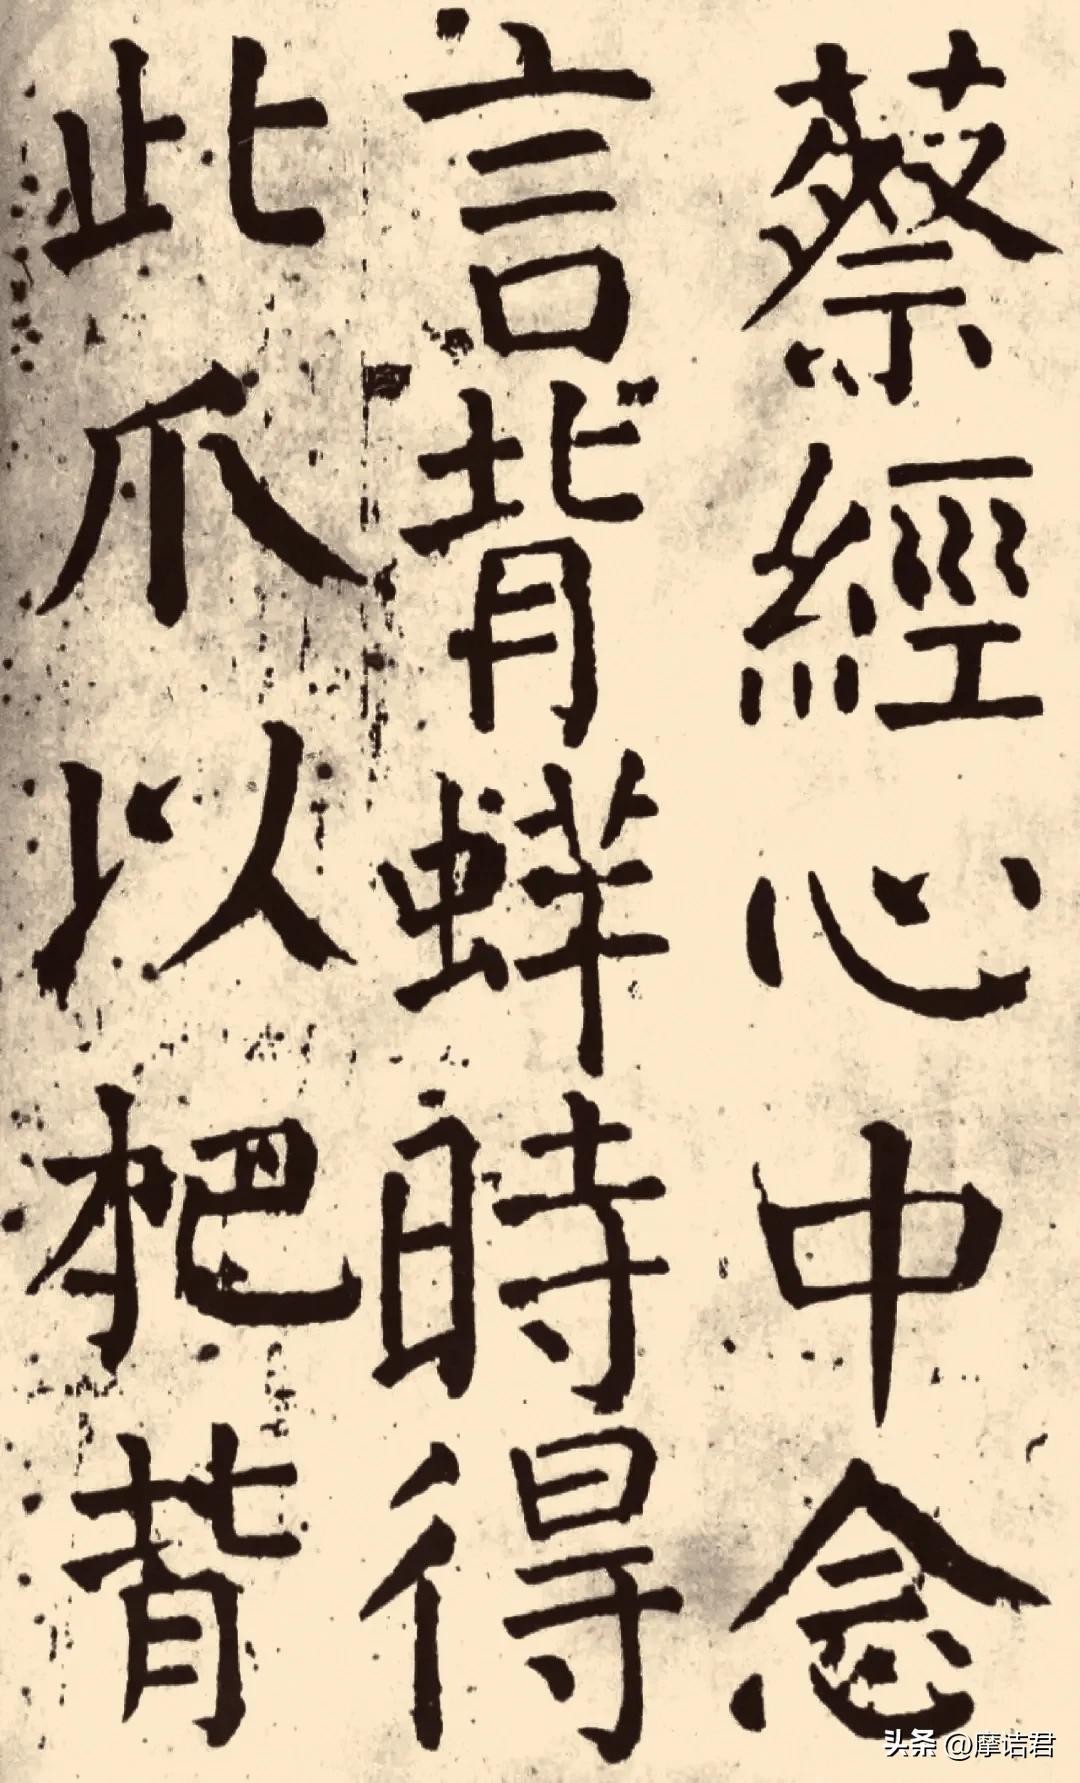 蔡經心中念
言背蛘時得
此爪以杷背
头条 @摩诘君